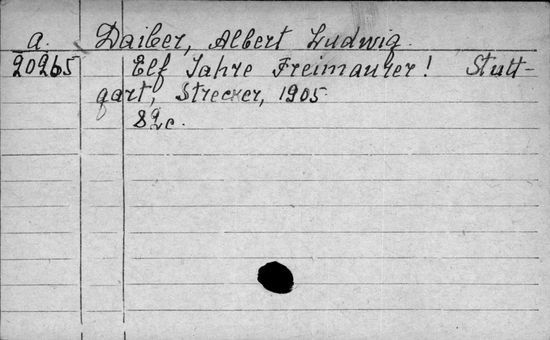 a. Daiber, Albert Ludwig.
20265 Elf Jahre Freimaurer! Stutt-
gart, Strecker, 1905.
82c.